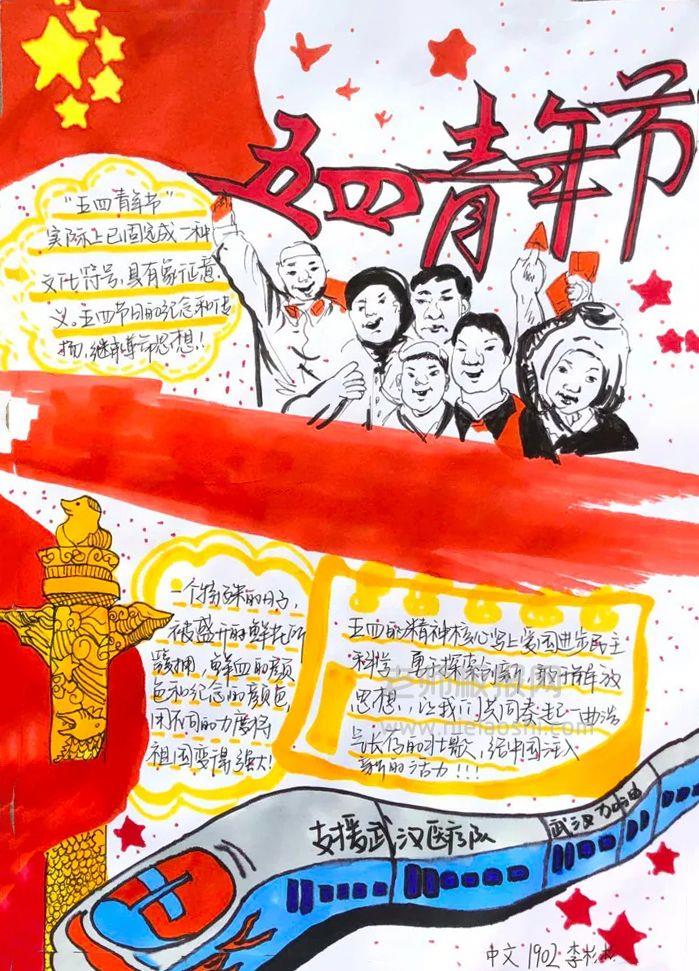 五四青年节
“五四青年节”
实际上已固定成一种
文化符号,具有象征意
义。五四节日的纪念和传
扬,继承革命思想!
一个特殊的日子,
被盛开的鲜花所
簇拥,鲜血的颜
色和纪念的颜色,
用不同的力量将
祖国变得强大!
五四的精神核心写上爱国进步民主
科学,勇于探索创新,敢于解放
思想,让我们共同奏起一曲浩
气长存的壮歌,给中国注入
新的活力!!!
老师板报网
www.mielaoshi.com
支援武汉医疗队
武汉加油
中文 1902 李杉